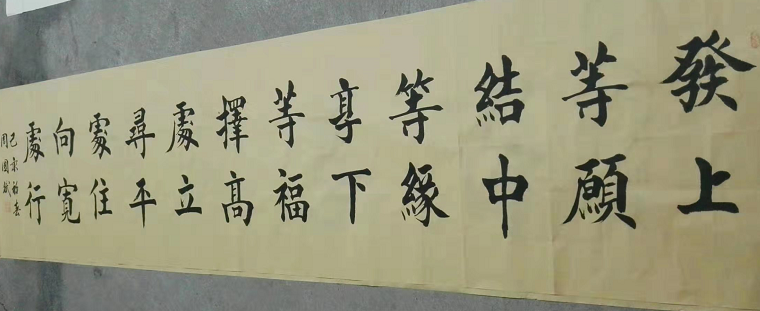 發上
等願
結中
等緣
享下
等福
擇高
處立
尋平
處住
向寬
處行
己亥春
周國